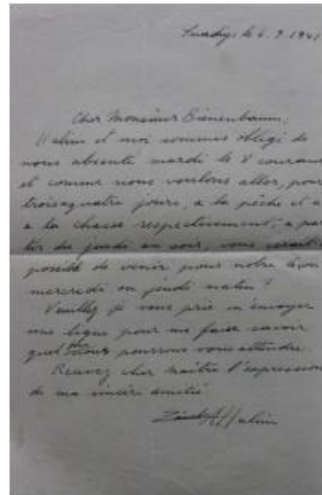 le 6.9.1941
Cher Monsieur Bienenbaum,
Halim et moi sommes obligé de
nous absenté mardi le 8 courant
et comme nous voulons aller, pour
trois quatre jours, a la pêche et
a la chasse respectivement, a par
tir du jeudi au soir, vous serait
possible de venir pour notre leçon
mercredi ou jeudi matin?
Veuillez je vous prie m'envoyer
une ligne pour me faire savoir
quel nous pourrons vous attendre.
Recevez cher maître l'expression
de ma sincère amitié
Halim